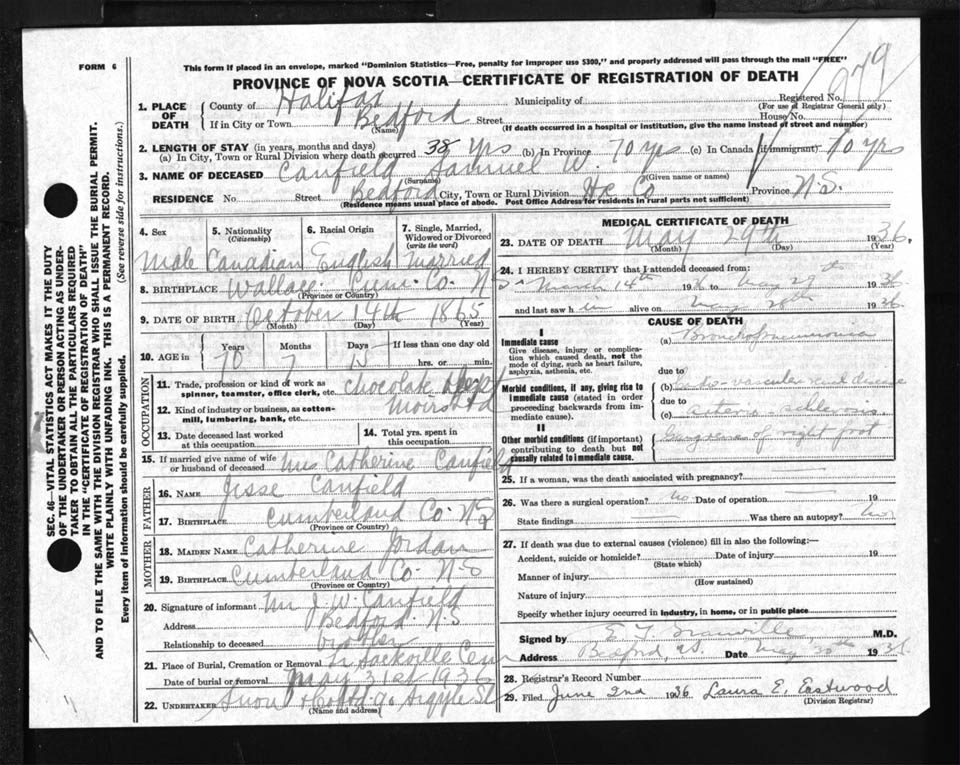 FORM 6
This form if placed in an envelope, marked "Dominion Statistics—Free, penalty for improper use $300," and properly addressed will pass through the mail "FREE"
PROVINCE OF NOVA SCOTIA—CERTIFICATE OF REGISTRATION OF DEATH
879
1. PLACE OF DEATH
County of Halifax Municipality of Registered No.
(For use of Registrar General only)
If in City or Town Bedford Street House No.
(Name) (If death occurred in a hospital or institution, give the name instead of street and number)
2. LENGTH OF STAY (in years, months and days)
(a) In City, Town or Rural Division where death occurred 38 yrs (b) In Province 70 yrs (c) In Canada (if immigrant) 70 yrs
3. NAME OF DECEASED Canfield Samuel W.
(Surname) (Given name or names)
RESIDENCE No. Street Bedford City, Town or Rural Division Hx Co Province N.S.
(Residence means usual place of abode. Post Office Address for residents in rural parts not sufficient)
4. Sex 5. Nationality (Citizenship) 6. Racial Origin 7. Single, Married, Widowed or Divorced (write the word)
Male Canadian English Married
8. BIRTHPLACE Wallace Cum. Co. N S
(Province or Country)
9. DATE OF BIRTH October 14th 1865
(Month) (Day) (Year)
10. AGE in Years Months Days If less than one day old
70 7 15 hrs. or min.
OCCUPATION
11. Trade, profession or kind of work as spinner, teamster, office clerk, etc. Chocolate Dept
12. Kind of industry or business, as cotten-mill, lumbering, bank, etc. Moirs Ltd
13. Date deceased last worked at this occupation
14. Total yrs. spent in this occupation
15. If married give name of wife or husband of deceased Mrs Catherine Canfield
FATHER
16. NAME Jesse Canfield
17. BIRTHPLACE Cumberland Co. N S
(Province or Country)
MOTHER
18. MAIDEN NAME Catherine Jordan
19. BIRTHPLACE Cumberland Co N S
(Province or Country)
20. Signature of informant Mr J. W. Canfield
Address Bedford N.S
Relationship to deceased brother
21. Place of Burial, Cremation or Removal Sackville Cem
Date of burial or removal May 31st 1936
22. UNDERTAKER Snow & Co Ltd 90 Argyle St
(Name and address)
MEDICAL CERTIFICATE OF DEATH
23. DATE OF DEATH May 29th 1936.
(Month) (Day) (Year)
24. I HEREBY CERTIFY that I attended deceased from:
March 14th 1936 to May 29th 1936
and last saw him alive on May 28th 1936
CAUSE OF DEATH
I
Immediate cause
Give disease, injury or complication which caused death, not the mode of dying, such as heart failure, asphyxia, asthenia, etc.
(a) Bronchopneumonia
due to
Morbid conditions, if any, giving rise to immediate cause (stated in order proceeding backwards from immediate cause).
(b) Cardio-vascular renal disease
due to
(c) Arterio sclerosis.
II
Other morbid conditions (if important) contributing to death but not causally related to immediate cause.
Gangrene of right foot
25. If a woman, was the death associated with pregnancy?
26. Was there a surgical operation? no Date of operation 19
State findings Was there an autopsy? no
27. If death was due to external causes (violence) fill in also the following:—
Accident, suicide or homicide? Date of injury 19
(State which)
Manner of injury
(How sustained)
Nature of injury
Specify whether injury occurred in industry, in home, or in public place
Signed by E. T. Granville M.D.
Address Bedford, N.S. Date May 30th 1936.
28. Registrar's Record Number
29. Filed June 2nd 1936 Laura E. Eastwood
(Division Registrar)
SEC. 46—VITAL STATISTICS ACT MAKES IT THE DUTY
OF THE UNDERTAKER OR PERSON ACTING AS UNDER-
TAKER TO OBTAIN ALL THE PARTICULARS REQUIRED
IN THE "CERTIFICATE OF REGISTRATION OF DEATH"
AND TO FILE THE SAME WITH THE DIVISION REGISTRAR WHO SHALL ISSUE THE BURIAL PERMIT.
WRITE PLAINLY WITH UNFADING INK. THIS IS A PERMANENT RECORD.
Every item of information should be carefully supplied. (See reverse side for instructions.)